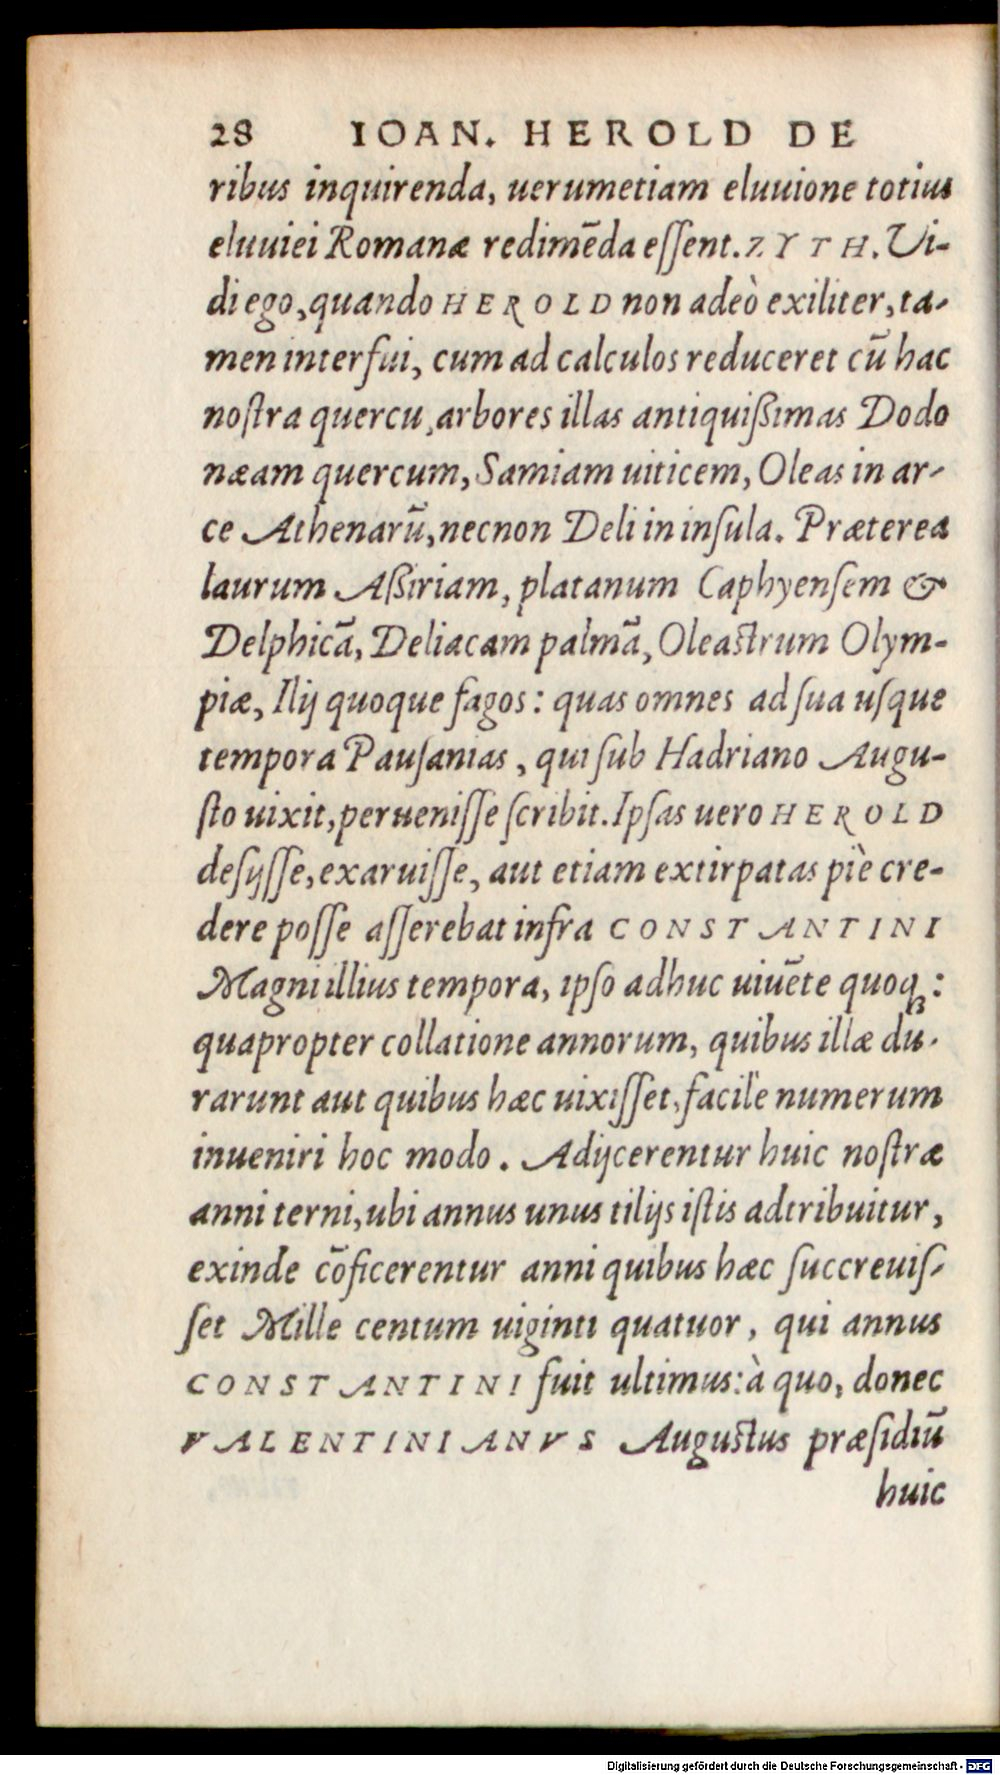 28 IOAN. HEROLD DE
ribus inquirenda, uerumetiam eluuione totius
eluuiei Romanæ redimēda eſſent. ZYTH. Vi-
di ego, quando HEROLD non adeò exiliter, ta-
men interfui, cum ad calculos reduceret cū hac
noſtra quercu, arbores illas antiquißimas Dodo
næam quercum, Samiam uiticem, Oleas in ar-
ce Athenarū, necnon Deli in inſula. Præterea
laurum Aßiriam, platanum Caphyenſem &
Delphicā, Deliacam palmā, Oleaſtrum Olym-
piæ, Ilij quoque fagos: quas omnes ad ſua uſque
tempora Pauſanias, qui ſub Hadriano Augu-
ſto uixit, perueniſſe ſcribit. Ipſas uero HEROLD
deſijſſe, exaruiſſe, aut etiam extirpatas piè cre-
dere poſſe aſſerebat infra CONSTANTINI
Magni illius tempora, ipſo adhuc uiuēte quoqꝫ:
quapropter collatione annorum, quibus illæ du-
rarunt aut quibus hæc uixiſſet, facile numerum
inueniri hoc modo. Adijcerentur huic noſtræ
anni terni, ubi annus unus tilijs iſtis adtribuitur,
exinde cōficerentur anni quibus hæc ſuccreuiſ-
ſet Mille centum uiginti quatuor, qui annus
CONSTANTINI fuit ultimus: à quo, donec
VALENTINIANVS Auguſtus præſidiū
huic
Digitalisierung gefördert durch die Deutsche Forschungsgemeinschaft - DFG